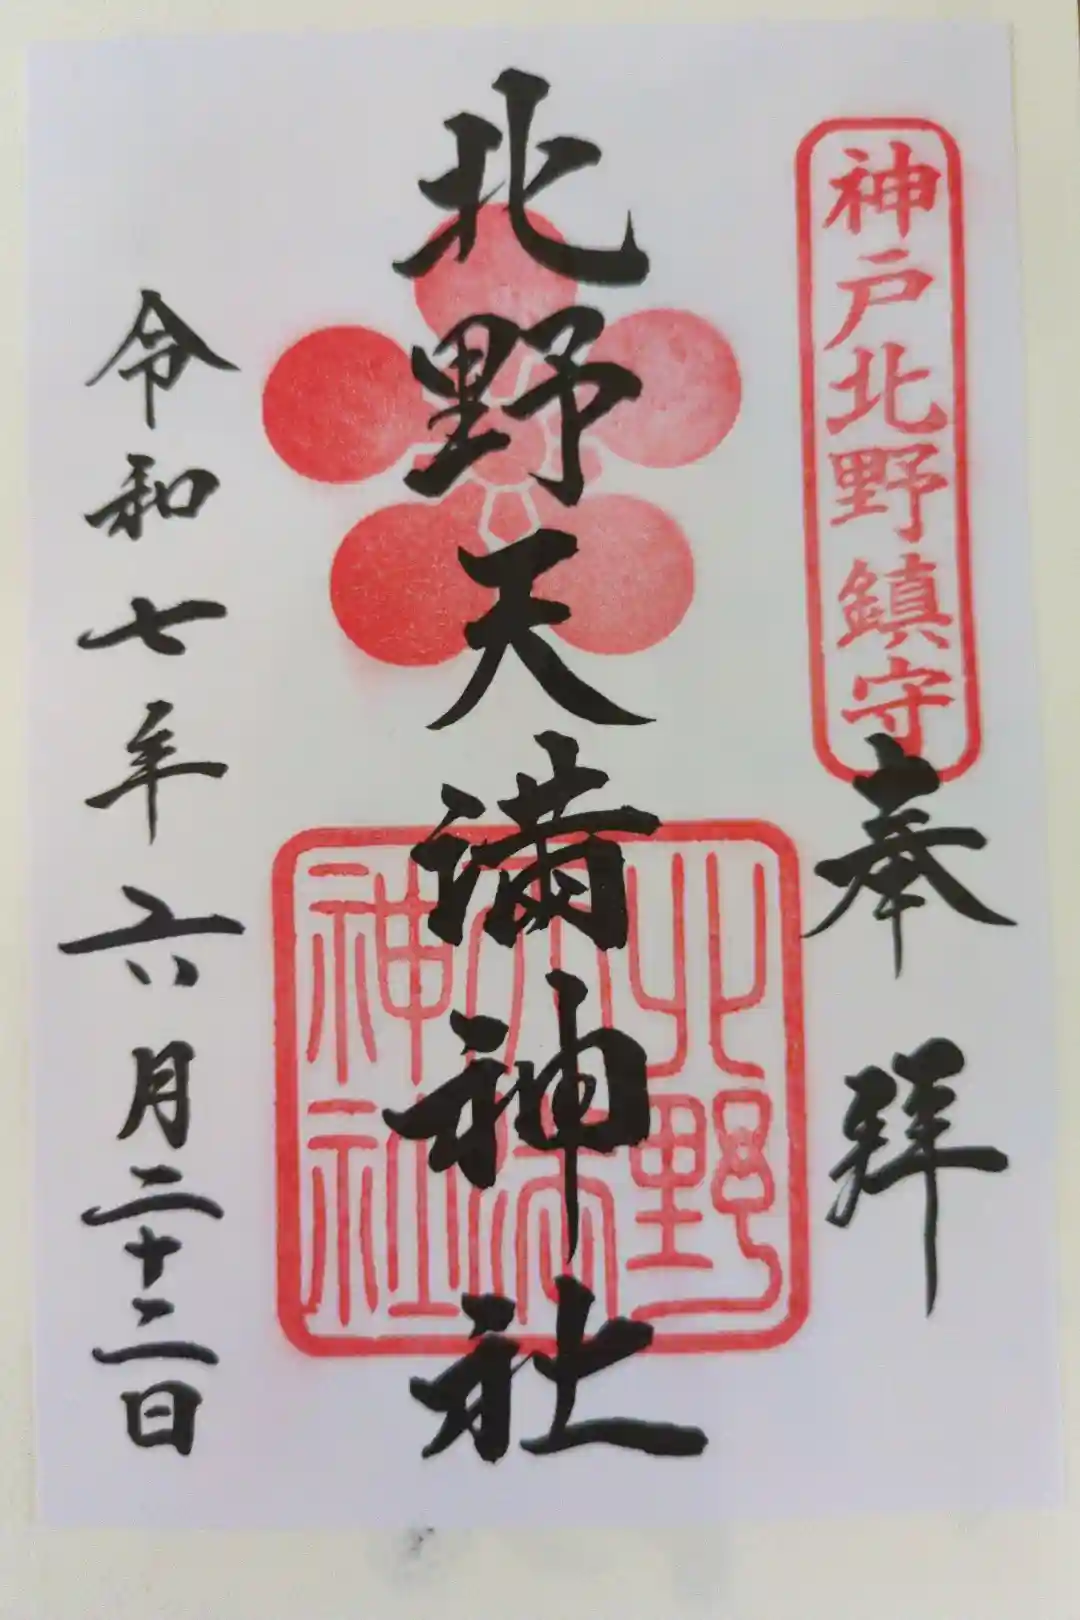 神戸北野鎮守
奉拝
北野天満神社
北野
天満
神社
令和七年六月二十二日